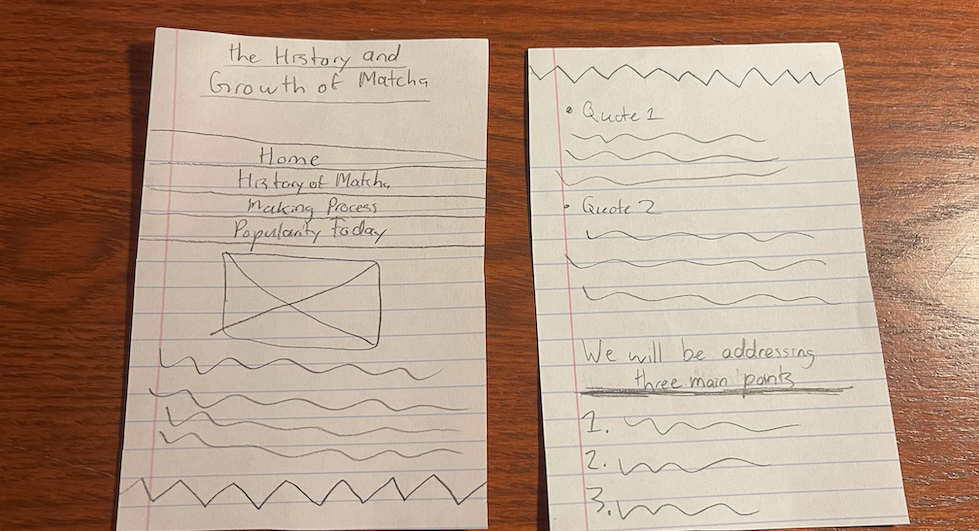 the History and
Growth of Matcha
Home
History of Matcha
Making Process
Popularity Today
• Quote 1
• Quote 2
We will be addressing
three main points
1.
2.
3.